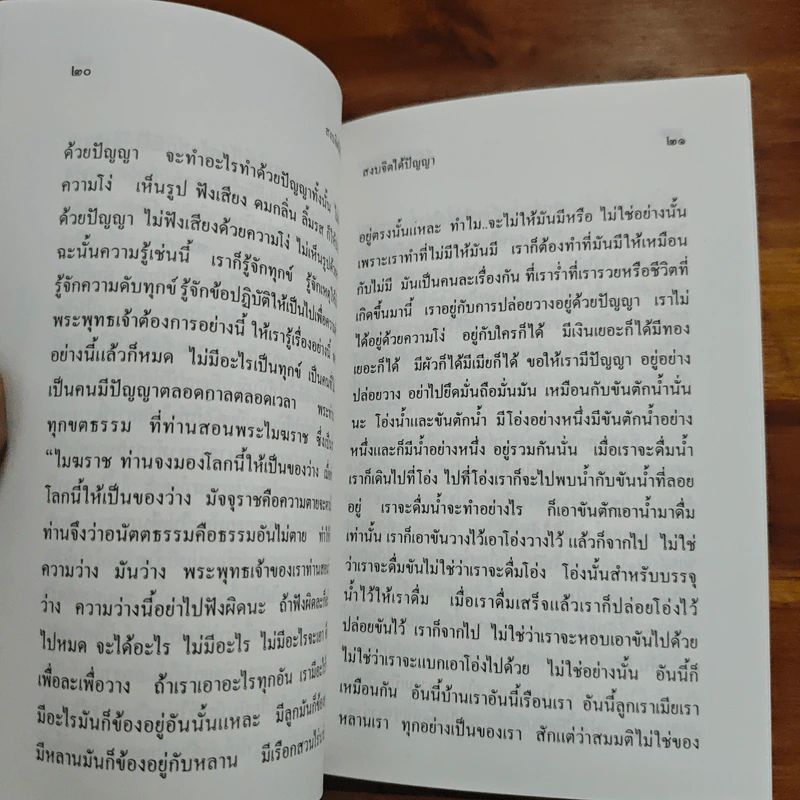 ๒๐
ด้วยปัญญา จะทำอะไรทำด้วยปัญญาทั้งนั้น
ความโง่ เห็นรูป ฟังเสียง ดมกลิ่น ลิ้มรส
ด้วยปัญญา ไม่ฟังเสียงด้วยความโง่ ไม่เห็นรูปด้วย
ฉะนั้นความรู้เช่นนี้ เราก็รู้จักทุกข์
รู้จักความดับทุกข์ รู้จักข้อปฏิบัติให้เป็นไปเพื่อ
พระพุทธเจ้าต้องการอย่างนี้ ให้เรารู้เรื่องอย่างนี้
อย่างนี้แล้วก็หมด ไม่มีอะไรเป็นทุกข์
เป็นคนมีปัญญาตลอดกาลตลอดเวลา
ทุกขตธรรม ที่ท่านสอนพระไมฆราช
“ไมฆราช ท่านจงมองโลกนี้ให้เป็นของว่าง
โลกนี้ให้เป็นของว่าง มัจจุราชคือความตาย
ท่านจึงว่าอนัตตธรรมคือธรรมอันไม่ตาย
ความว่าง มันว่าง พระพุทธเจ้าของเราท่าน
ว่าง ความว่างนี้อย่าไปฟังผิดนะ
ไปหมด จะได้อะไร ไม่มีอะไร
เพื่อละเพื่อวาง ถ้าเราเอาอะไรทุกอัน
มีอะไรมันก็ข้องอยู่อันนั้นแหละ มีลูกมันก็ข้อง
มีหลานมันก็ข้องอยู่กับหลาน
สงบจิตได้ปัญญา
๒๑
อยู่ตรงนั้นแหละ ทำไม..จะไม่ให้มันมีหรือ ไม่ใช่อย่างนั้น
เพราะเราทำที่ไม่มีให้มันมี เราก็ต้องทำที่มันมีให้เหมือน
กับไม่มี มันเป็นคนละเรื่องกัน ที่เราร่ำที่เรารวยหรือชีวิตที่
เกิดขึ้นมานี้ เราอยู่กับการปล่อยวางอยู่ด้วยปัญญา เราไม่
ได้อยู่ด้วยความโง่ อยู่กับใครก็ได้ มีเงินเยอะก็ได้มีทอง
เยอะก็ได้ มีผัวก็ได้มีเมียก็ได้ ขอให้เรามีปัญญา อยู่อย่าง
ปล่อยวาง อย่าไปยึดมั่นถือมั่นมัน เหมือนกับขันตักน้ำนั่น
นะ โอ่งน้ำและขันตักน้ำ มีโอ่งอย่างหนึ่งมีขันตักน้ำอย่าง
หนึ่งและก็มีน้ำอย่างหนึ่ง อยู่รวมกันนั่น เมื่อเราจะดื่มน้ำ
เราก็เดินไปที่โอ่ง ไปที่โอ่งเราก็จะไปพบน้ำกับขันน้ำที่ลอย
อยู่ เราจะดื่มน้ำจะทำอย่างไร ก็เอาขันตักเอาน้ำมาดื่ม
เท่านั้น เราก็เอาขันวางไว้เอาโอ่งวางไว้ แล้วก็จากไป ไม่ใช่
ว่าเราจะดื่มขันไม่ใช่ว่าเราจะดื่มโอ่ง โอ่งนั้นสำหรับบรรจุ
น้ำไว้ให้เราดื่ม เมื่อเราดื่มเสร็จแล้วเราก็ปล่อยโอ่งไว้
ปล่อยขันไว้ เราก็จากไป ไม่ใช่ว่าเราจะหอบเอาขันไปด้วย
ไม่ใช่ว่าเราจะแบกเอาโอ่งไปด้วย ไม่ใช่อย่างนั้น อันนี้ก็
เหมือนกัน อันนี้บ้านเราอันนี้เรือนเรา อันนี้ลูกเราเมียเรา
หลานเรา ทุกอย่างเป็นของเรา สักแต่ว่าสมมติไม่ใช่ของ